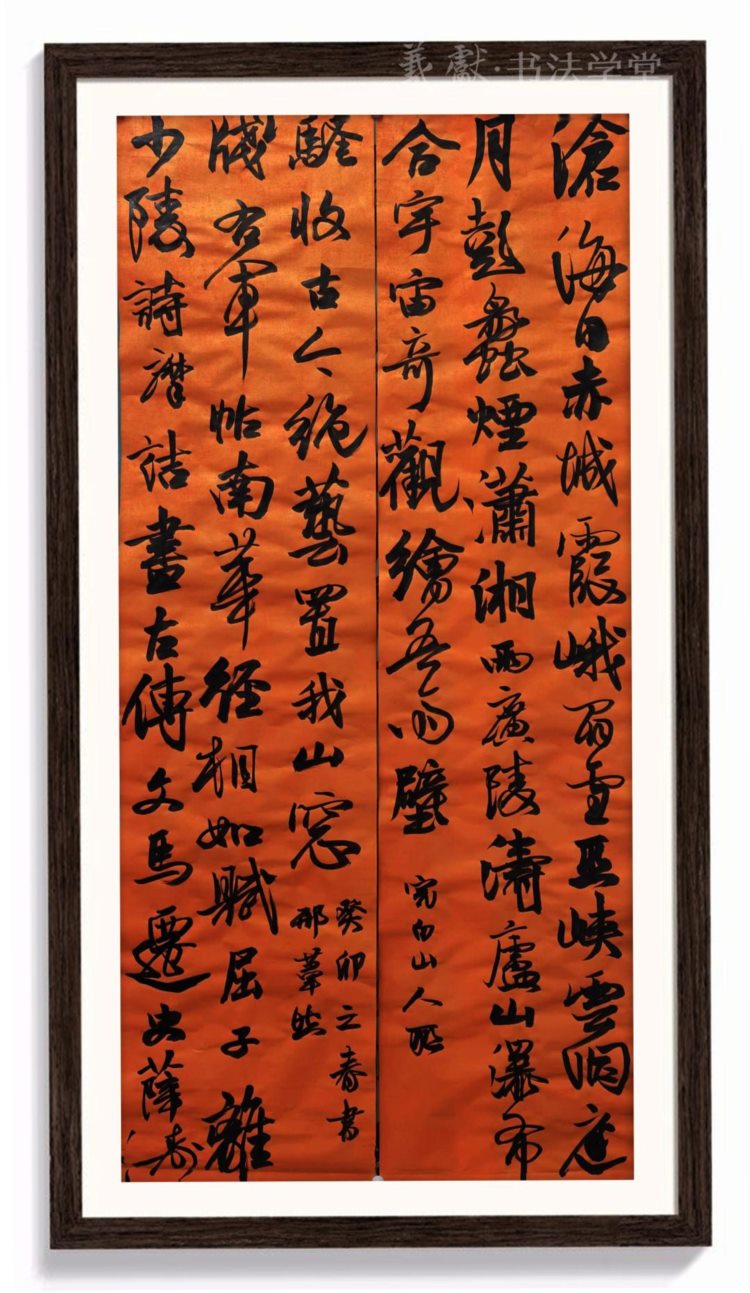 滄海日赤城霞峨眉雪巫峽雲洞庭
月彭蠡煙瀟湘雨廣陵濤廬山瀑布
合宇宙奇觀繪吾齋壁
完白山人聯
少陵詩摩詰畫左傳文馬遷史薛濤
牋右軍帖南華經相如賦屈子離
騷收古今絶藝置我山窓
癸卯之春書
那葦
義獻·书法学堂